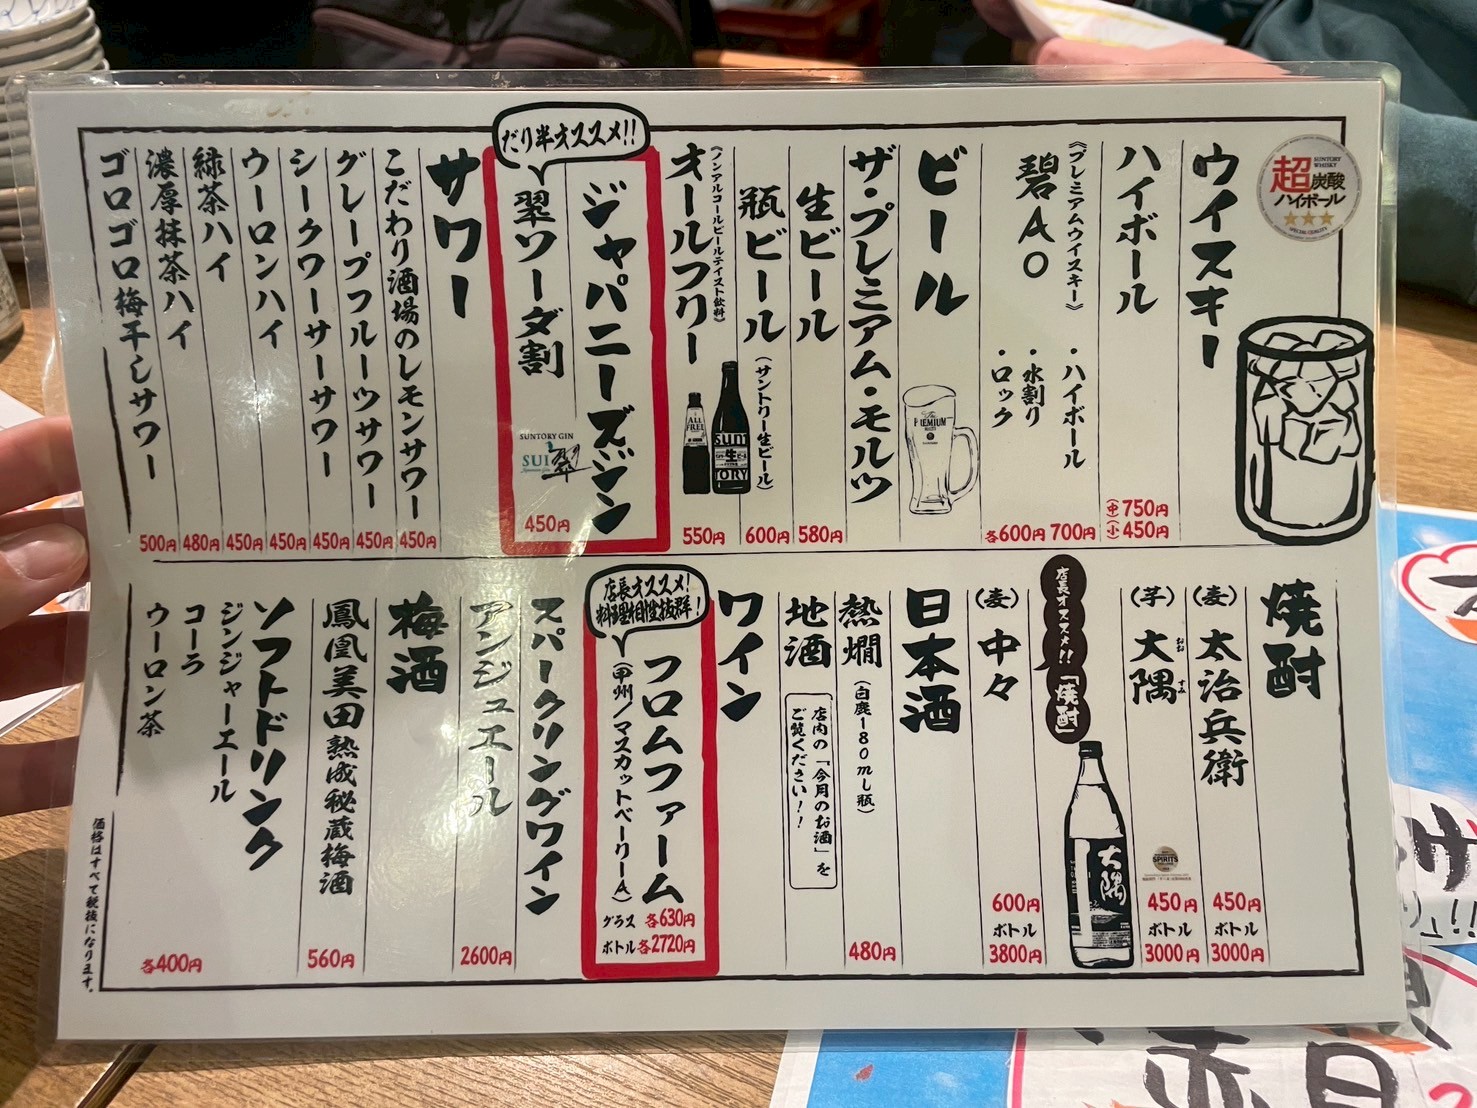 超炭酸
ハイボール
SUNTORY
WHISKY
SPECIAL QUALITY
ウイスキー
ハイボール
(中)750円
(小)450円
《プレミアムウイスキー》
碧Ao
・ハイボール
700円
・水割り
・ロック
各600円
ビール
The
PREMIUM
ザ・プレミアム・モルツ
生ビール
580円
瓶ビール
(サントリー生ビール)
600円
SUNTORY
生
オールフリー
(ノンアルコールビールテイスト飲料)
550円
ALL
FREE
だり半オススメ!!
ジャパニーズジン
翠ソーダ割
SUNTORY GIN
SUI
翠
450円
サワー
こだわり酒場のレモンサワー
450円
グレープフルーツサワー
450円
シークワーサーサワー
450円
ウーロンハイ
450円
緑茶ハイ
450円
濃厚抹茶ハイ
480円
ゴロゴロ梅干しサワー
500円
焼酎
(麦)太治兵衛
450円
ボトル
3000円
(芋)大隅
おお すみ
450円
ボトル
3000円
SPIRITS
店長オススメ!!「焼酎」
大隅
(麦)中々
600円
ボトル
3800円
日本酒
熱燗
(白鹿180ml瓶)
480円
地酒
店内の「今月のお酒」を
ご覧ください!!
ワイン
店長オススメ!
料理相性抜群!
フロムファーム
(甲州/マスカットベーリーA)
グラス 各630円
ボトル 各2720円
スパークリングワイン
アンジュエール
2600円
梅酒
鳳凰美田熟成秘蔵梅酒
560円
ソフトドリンク
ジンジャーエール
コーラ
ウーロン茶
各400円
価格はすべて税抜になります。